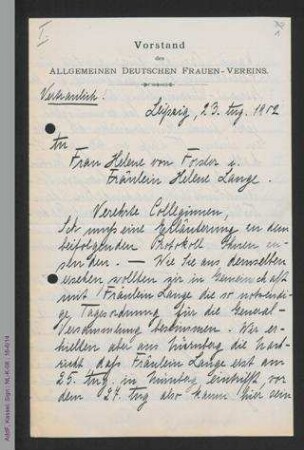 I
Vorstand
des
ALLGEMEINEN DEUTSCHEN FRAUEN-VEREINS.
Vertraulich.
Leipzig, 23. Aug. 1902
An
Frau Helene von Forster u.
Fräulein Helene Lange.
Verehrte Colleginnen,
Ich muss eine Erläuterung zu dem
beifolgenden Protokoll Ihnen
senden. — Wie Sie aus demselben
ersehen wollten wir in Gemeinschaft
mit Fräulein Lange die so notwendi-
ge Tagesordnung für die General-
Versammlung bestimmen. Wir er-
hielten aber aus Nürnberg die Nach-
richt dass Fräulein Lange erst am
25. Aug. in Nürnberg eintrifft, vor
dem 27. Aug also kaum hier sein
AddF, Kassel, Sign.: NL-K-08 ; 16-6/14